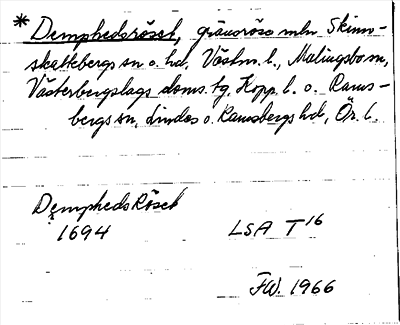 * Demphedsröset, gränsröse mln Skinn-
skattebergs sn o. hd, Västm. l., Malingsbo sn,
Västerbergslags doms. tg, Kopp. l. o. Rams-
bergs sn, Lindes o. Ramsbergs hd, Ör. l.
Demphedz Röset
1694 LSA T 16
FW. 1966